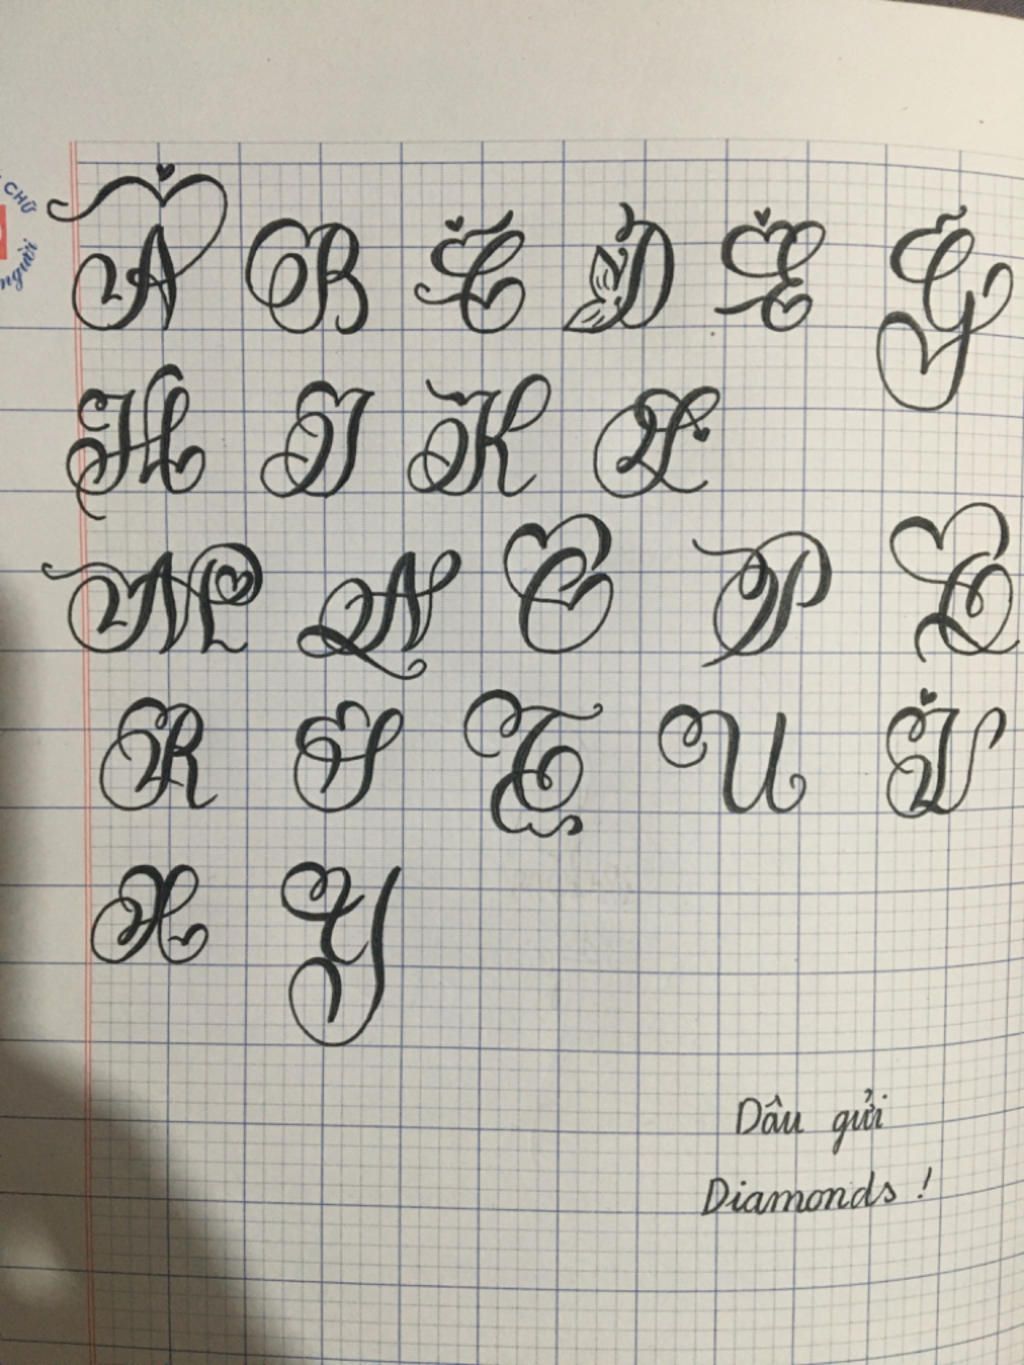 CHỮ
người
A B C D E G
H I K L
M N O P Q
R S T U V
X Y
Dâu gửi
Diamonds !